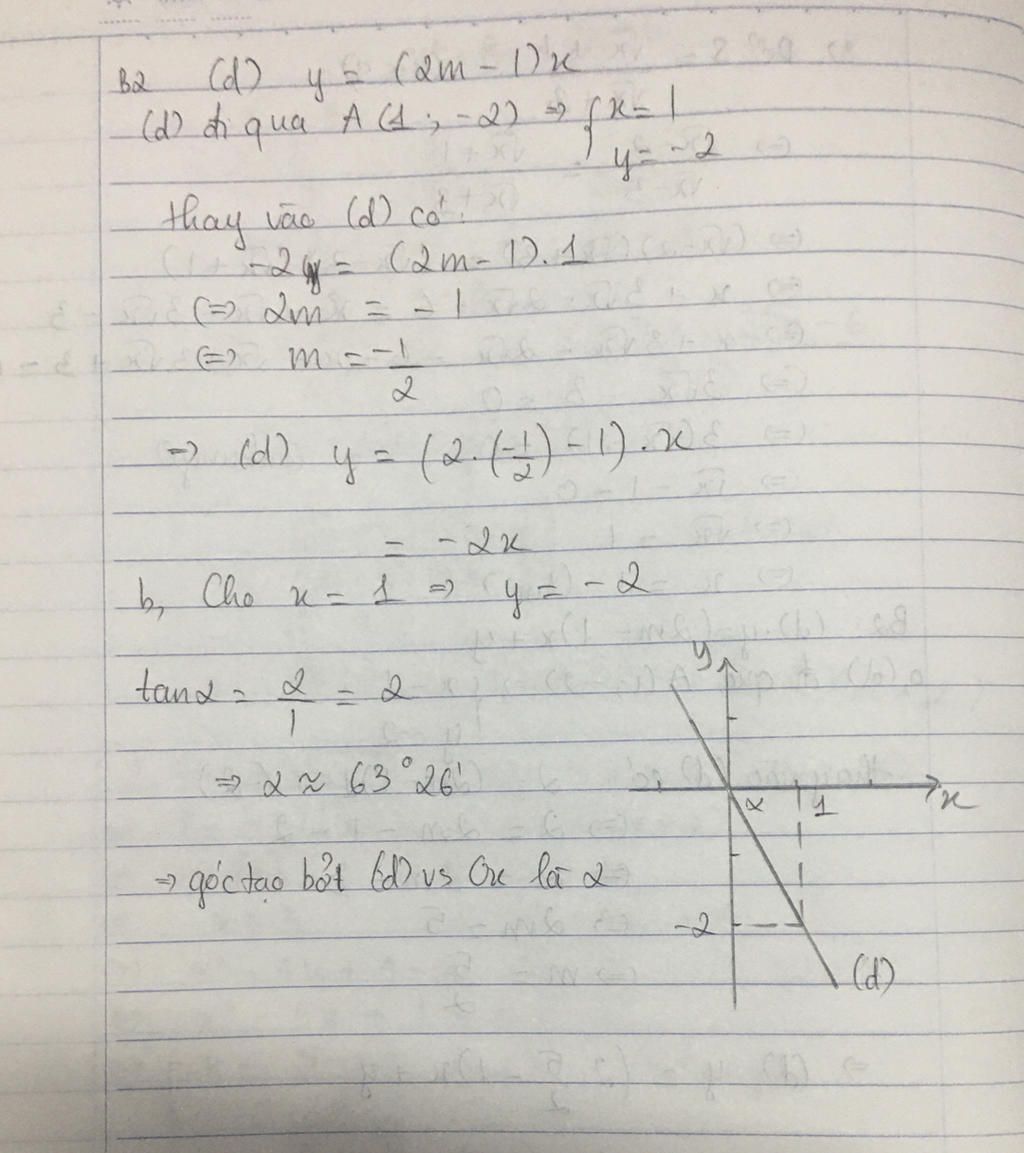 B2 (d) y = (2m - 1)x
(d) đi qua A (1 ; -2) => { x = 1
y = -2
thay vào (d) có:
-2 = (2m - 1). 1
(=) 2m = -1
(=) m = -1/2
=> (d) y = (2 . (-1/2) - 1) . x
= -2x
b, Cho x = 1 => y = -2
tan α = 2/1 = 2
=> α ≈ 63° 26'
=> góc tạo bởi (d) vs Ox là α
y
x
α
1
-2
(d)